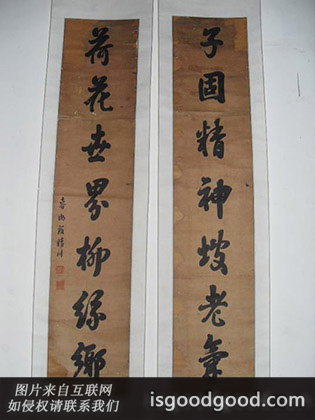 子固精神坡老氣
荷花世界柳絲鄉
图片来自互联网
如侵权请联系我们
isgoodgood.com